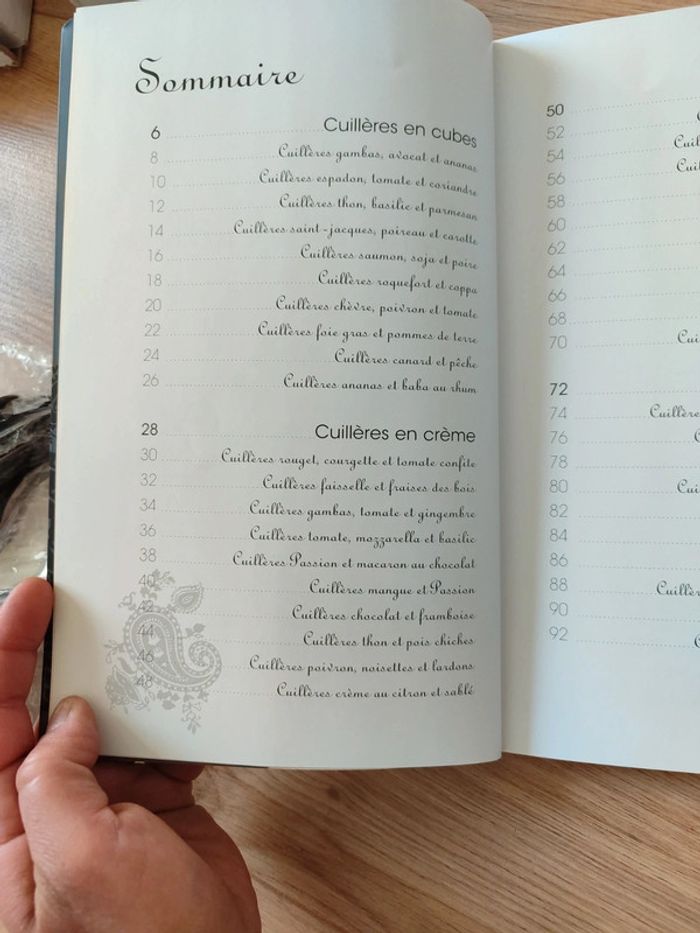 Sommaire
6 Cuillères en cubes
8 Cuillères gambas, avocat et ananas
10 Cuillères espadon, tomate et coriandre
12 Cuillères thon, basilic et parmesan
14 Cuillères saint-jacques, poireau et carotte
16 Cuillères saumon, soja et poire
18 Cuillères roquefort et coppa
20 Cuillères chèvre, poivron et tomate
22 Cuillères foie gras et pommes de terre
24 Cuillères canard et pêche
26 Cuillères ananas et baba au rhum
28 Cuillères en crème
30 Cuillères rouget, courgette et tomate confite
32 Cuillères faisselle et fraises des bois
34 Cuillères gambas, tomate et gingembre
36 Cuillères tomate, mozzarella et basilic
38 Cuillères Passion et macaron au chocolat
40 Cuillères mangue et Passion
42 Cuillères chocolat et framboise
44 Cuillères thon et pois chiches
46 Cuillères poivron, noisettes et lardons
48 Cuillères crème au citron et sablé
50
52
54
56
58
60
62
64
66
68
70
72
74
76
78
80
82
84
86
88
90
92